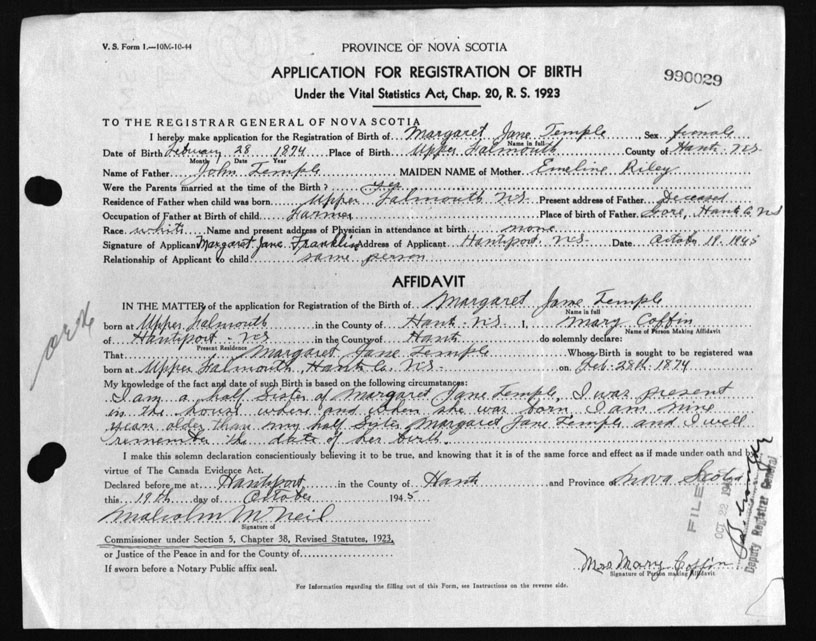 V. S. Form 1.—10M-10-44
PROVINCE OF NOVA SCOTIA
APPLICATION FOR REGISTRATION OF BIRTH
990029
Under the Vital Statistics Act, Chap. 20, R. S. 1923
TO THE REGISTRAR GENERAL OF NOVA SCOTIA
I hereby make application for the Registration of Birth of Margaret Jane Temple, Sex female
Name in full
Date of Birth February 28 1874 Place of Birth Upper Falmouth County of Hants NS
Month Date Year
Name of Father John Temple MAIDEN NAME of Mother Emeline Riley
Were the Parents married at the time of Birth? yes
Residence of Father when child was born Upper Falmouth NS Present address of Father Deceased
Occupation of Father at Birth of child Farmer Place of birth of Father Gore, Hants Co NS
Race white Name and present address of Physician in attendance at birth none
Signature of Applicant Margaret Jane Franklin Address of Applicant Hantsport NS Date October 19. 1945
Relationship of Applicant to child same person
AFFIDAVIT
IN THE MATTER of the application for Registration of the Birth of Margaret Jane Temple
Name in full
born at Upper Falmouth in the County of Hants - NS I, Mary Coffin
Name of Person Making Affidavit
of Hantsport - NS in the County of Hants do solemnly declare:
Present Residence
That Margaret Jane Temple Whose Birth is sought to be registered was
born at Upper Falmouth, Hants Co. NS. on Feb. 28th 1874
My knowledge of the fact and date of such Birth is based on the following circumstances:
I am a half Sister of Margaret Jane Temple, I was present
in the house where and when she was born, I am nine
years older than my half Sister Margaret Jane Temple and I well
remember the date of her birth.
I make this solemn declaration conscientiously believing it to be true, and knowing that it is of the same force and effect as if made under oath and by
virtue of The Canada Evidence Act.
Declared before me at Hantsport in the County of Hants and Province of Nova Scotia
this 19th day of October 1945
Malcolm McNeil
Signature of
Commissioner under Section 5, Chapter 38, Revised Statutes, 1923,
or Justice of the Peace in and for the County of
If sworn before a Notary Public affix seal.
Mrs Mary Coffin
Signature of Person making Affidavit
For Information regarding the filling out of this Form, see Instructions on the reverse side.
FILED
OCT 22
Deputy Registrar General